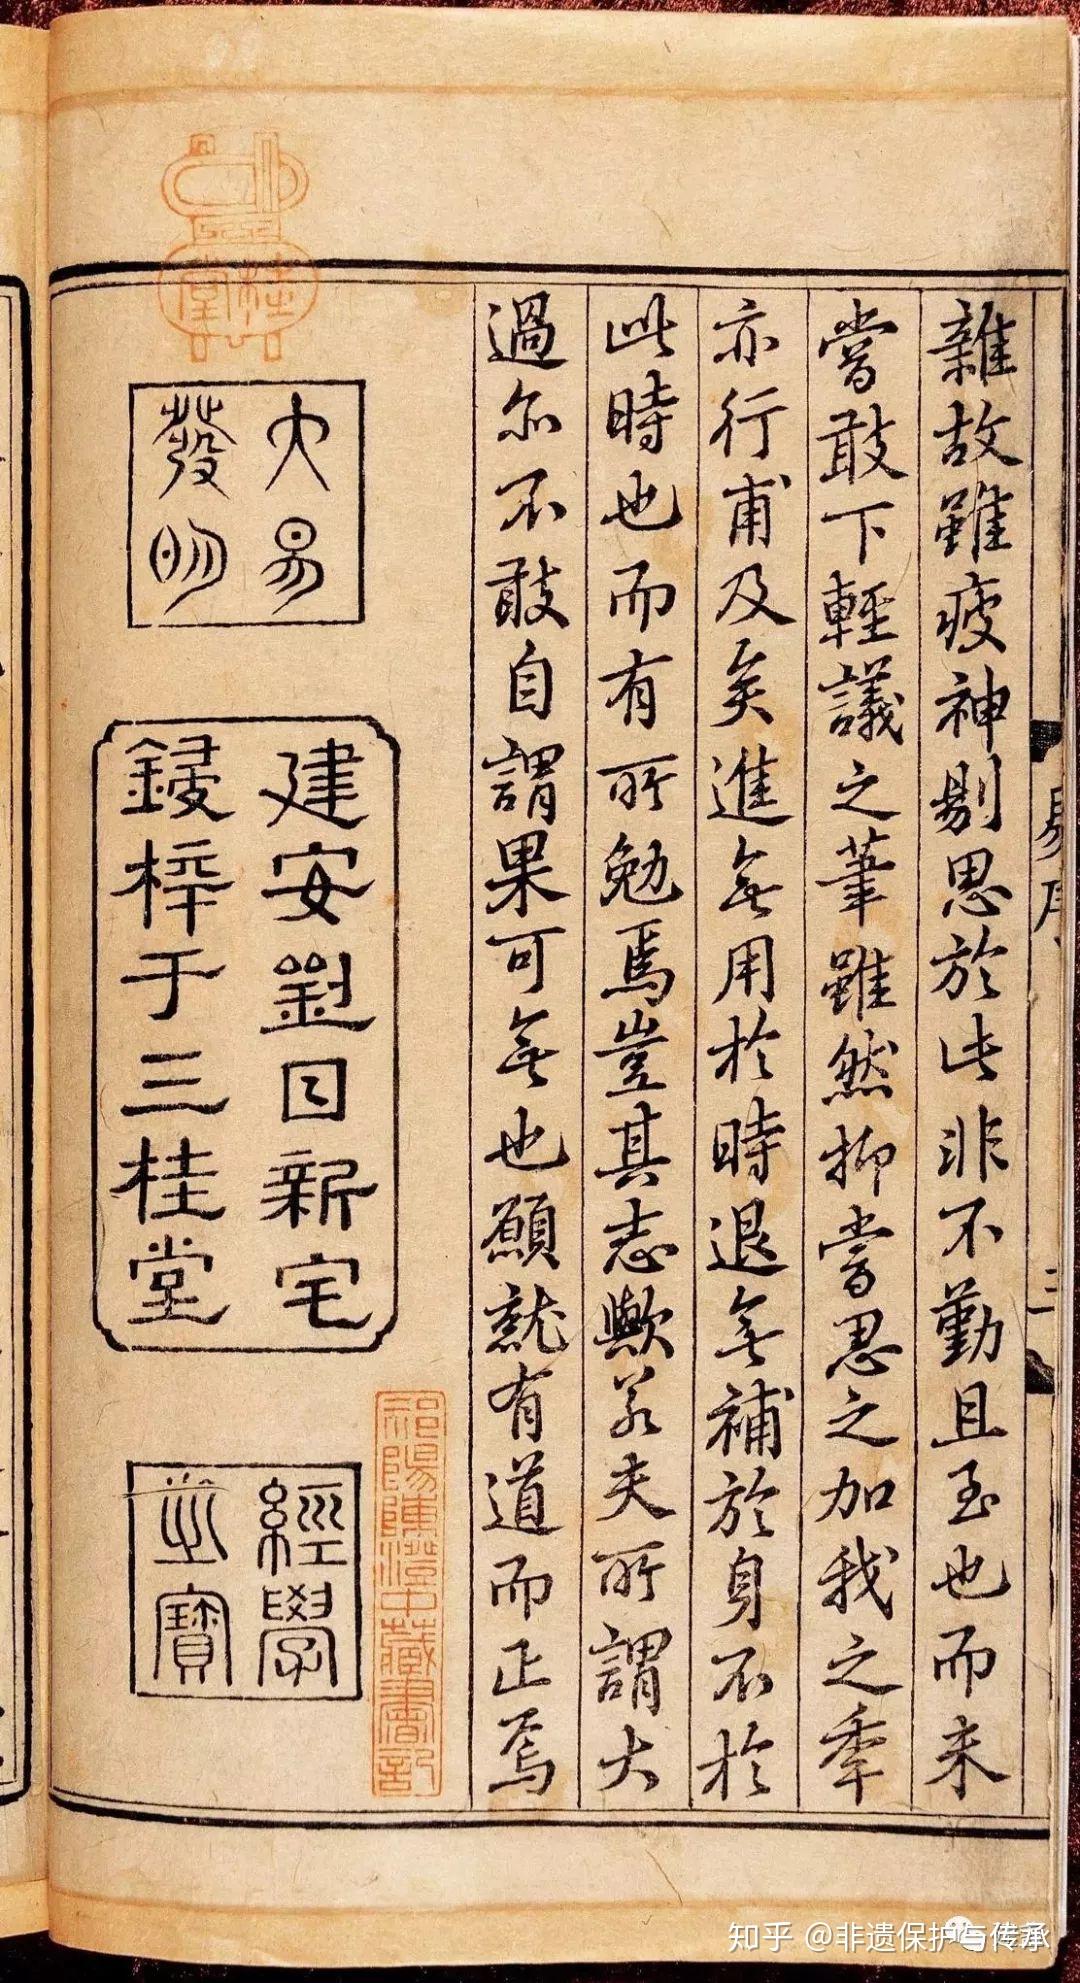 雜故雖疲神剔思於此非不勤且至也而未
嘗敢下輕議之筆雖然抑嘗思之加我之年
亦行甫及矣進無用於時退無補於身不於
此時也而有所勉焉豈其志歟若夫所謂大
過亦不敢自謂果可無也願就有道而正焉
大易
發明
建安劉日新宅
鋟梓于三桂堂
經學
至寶
易序
三
桂
堂
陽陳澄中藏書記
知乎 @非遗保护与传承